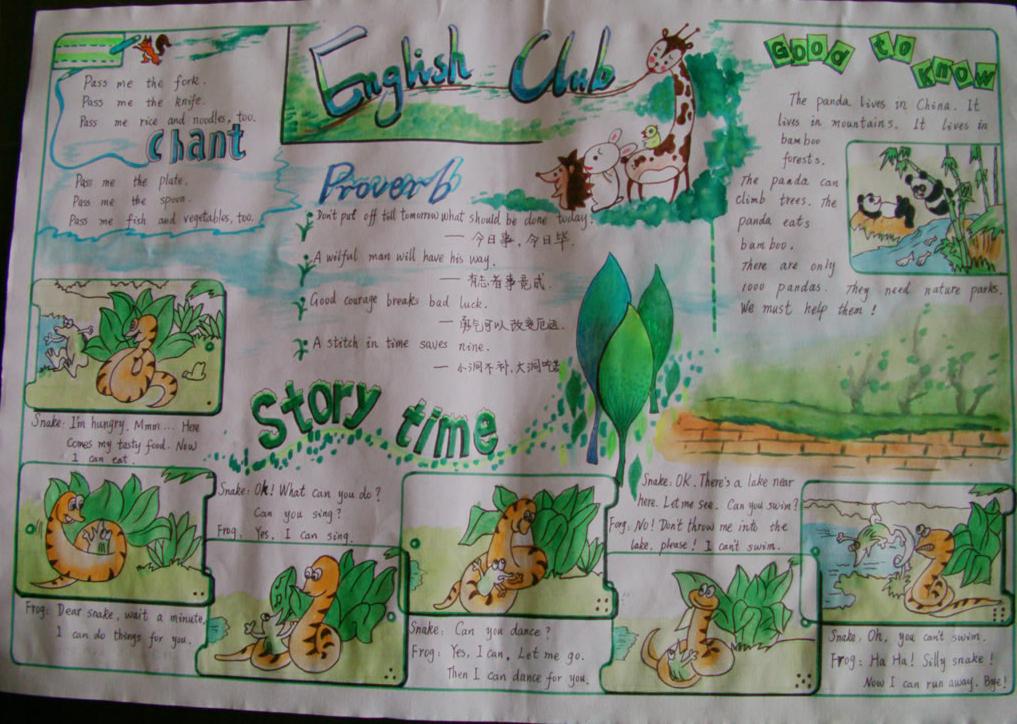 English Club
Pass me the fork.
Pass me the knife.
Pass me rice and noodles, too.
Chant
Pass me the plate.
Pass me the spoon.
Pass me fish and vegetables, too.
Proverb
Don't put off till tomorrow what should be done today.
— 今日事,今日毕.
A wilful man will have his way.
— 有志者事竟成.
Good courage breaks bad luck.
— 勇气可以改变厄运.
A stitch in time saves nine.
— 小洞不补,大洞吃苦
GOOD to KNOW
The panda lives in China. It
lives in mountains. It lives in
bamboo
forests.
The panda can
climb trees. The
panda eats
bamboo.
There are only
1000 pandas. They need nature parks.
We must help them!
Story time
Snake: I'm hungry. Mmm... Here
comes my tasty food. Now
I can eat.
Frog: Dear snake, wait a minute.
I can do things for you.
Snake: Oh! What can you do?
Can you sing?
Frog: Yes, I can sing.
Snake: Can you dance?
Frog: Yes, I can. Let me go.
Then I can dance for you.
Snake: OK. There's a lake near
here. Let me see. Can you swim?
Forg: No! Don't throw me into the
lake, please! I can't swim.
Snake: Oh, you can't swim.
Frog: Ha Ha! Silly snake!
Now I can run away. Bye!